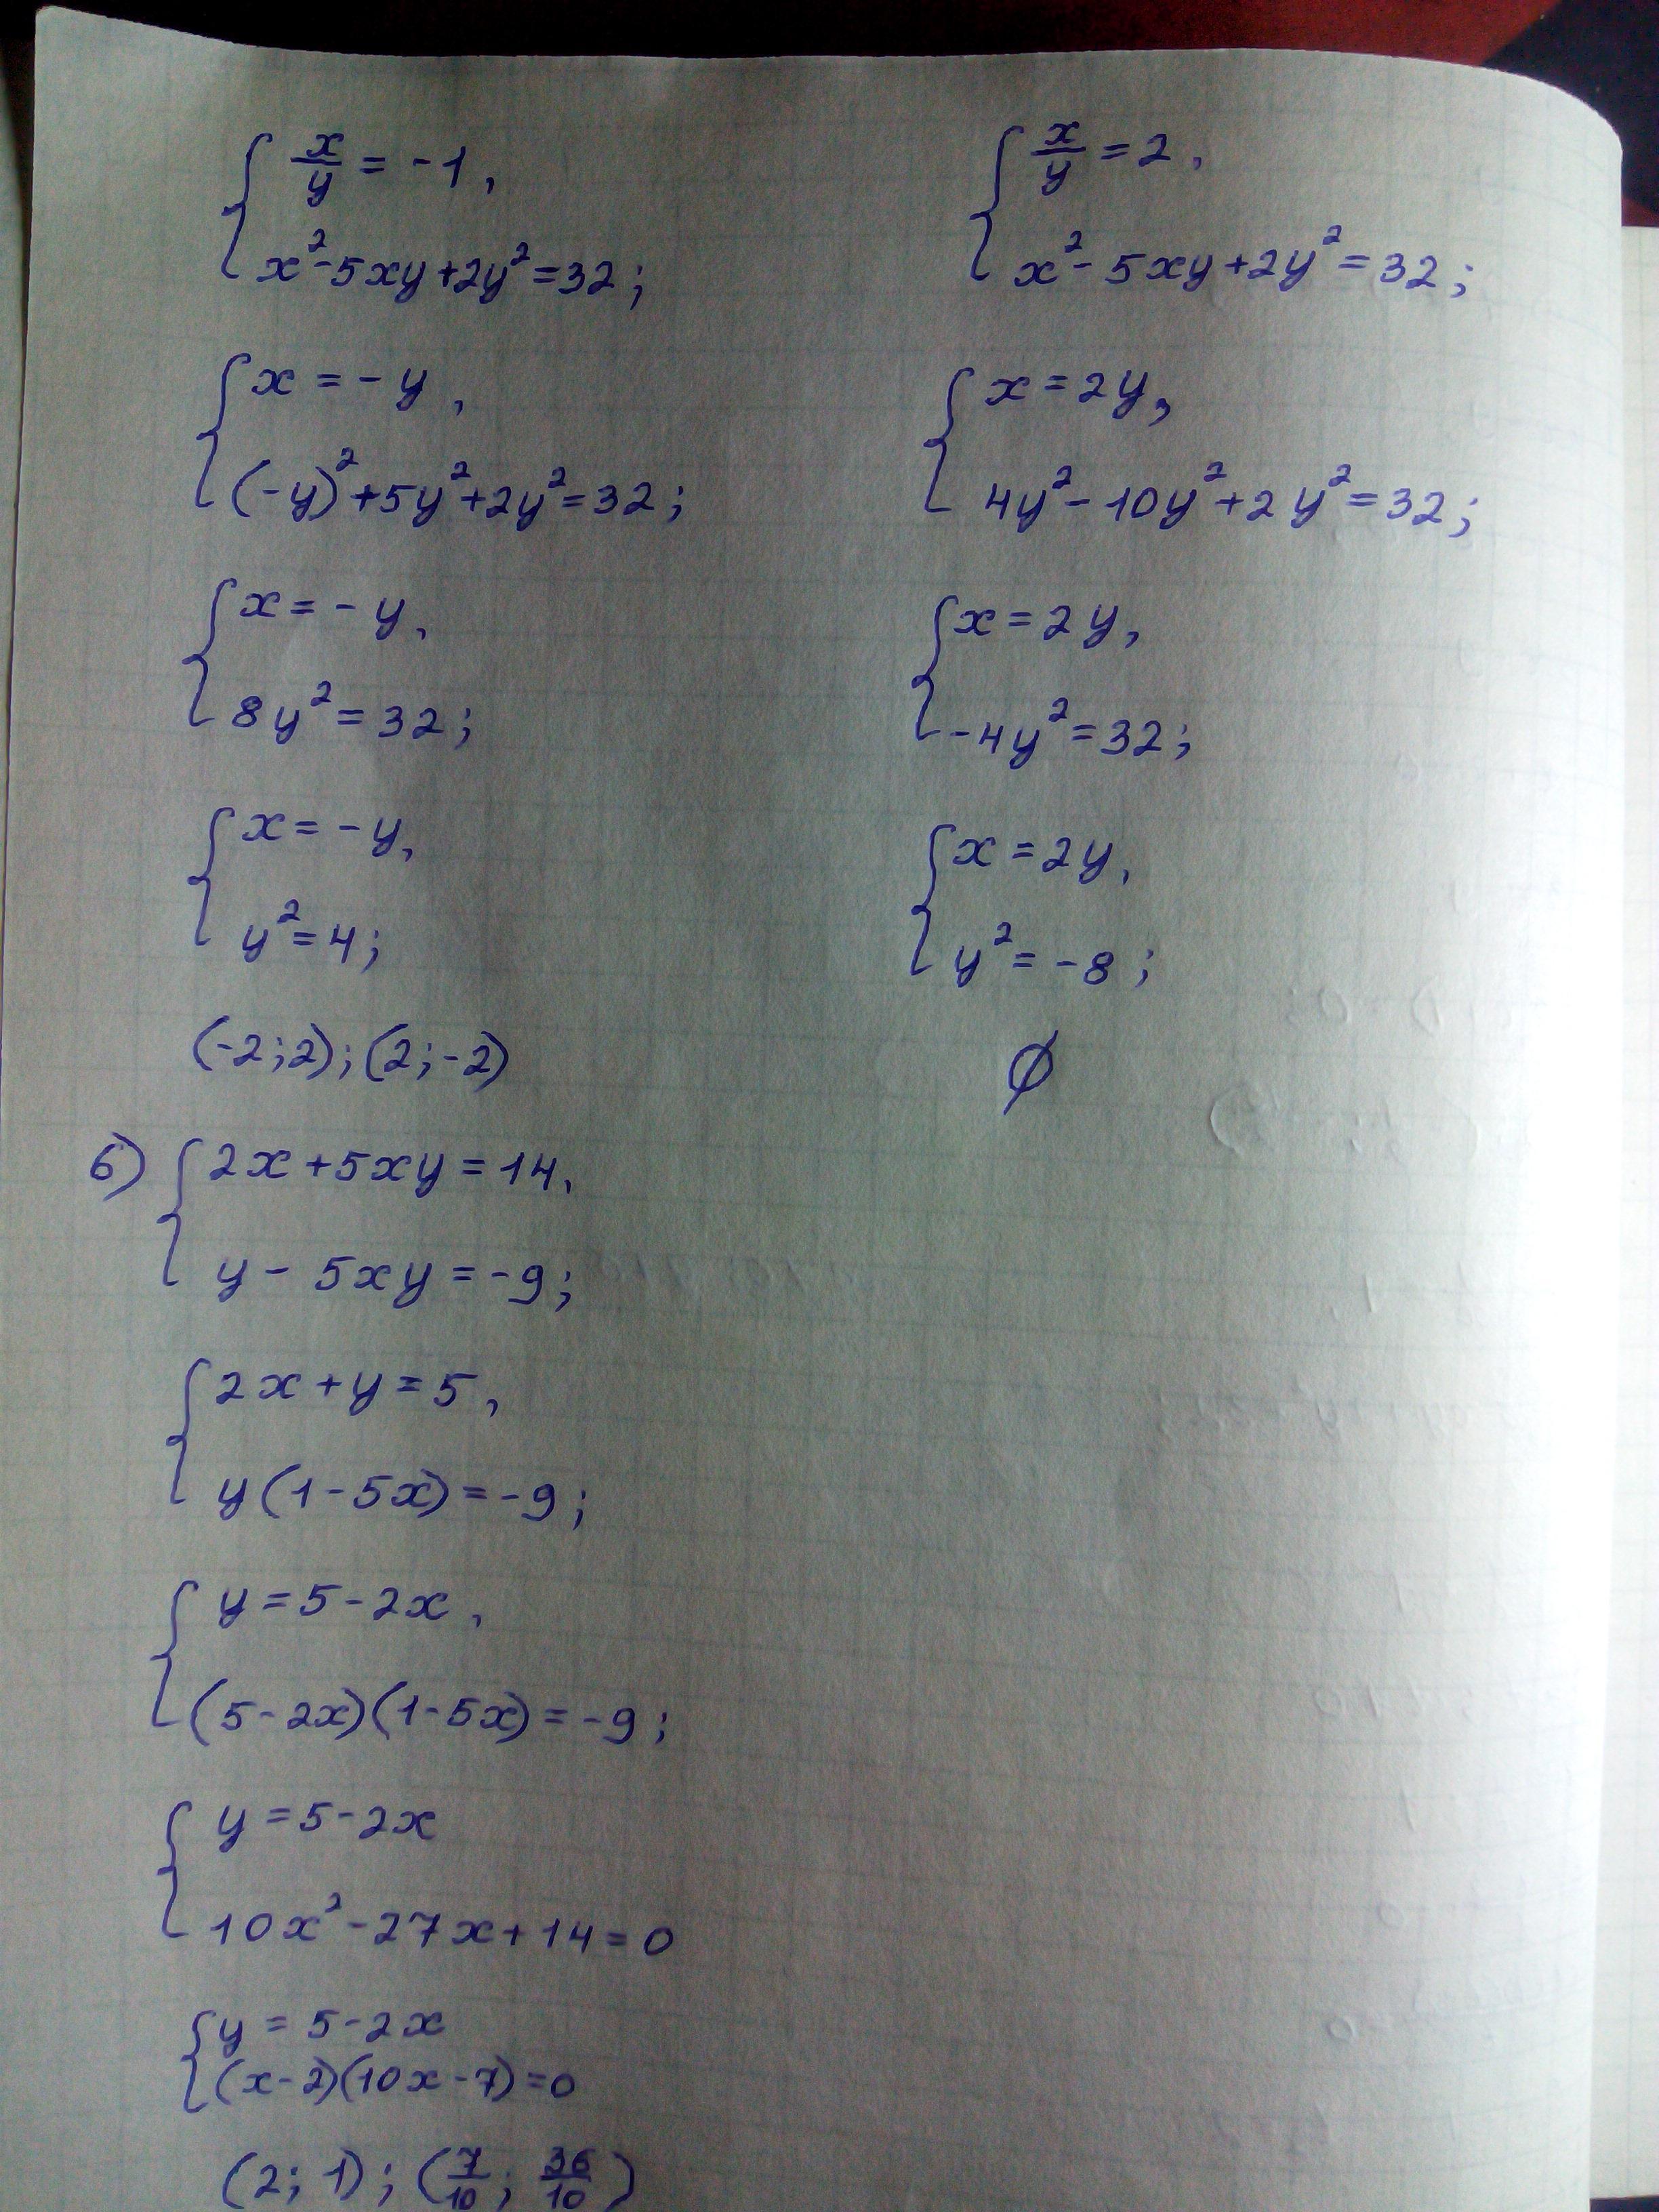 { x/y = -1,
x² - 5xy + 2y² = 32;
{ x = -y,
(-y)² + 5y² + 2y² = 32;
{ x = -y,
8y² = 32;
{ x = -y,
y² = 4;
(-2; 2); (2; -2)
{ x/y = 2,
x² - 5xy + 2y² = 32;
{ x = 2y,
4y² - 10y² + 2y² = 32;
{ x = 2y,
-4y² = 32;
{ x = 2y,
y² = -8;
∅
б) { 2x + 5xy = 14,
y - 5xy = -9;
{ 2x + y = 5,
y(1 - 5x) = -9;
{ y = 5 - 2x,
(5 - 2x)(1 - 5x) = -9;
{ y = 5 - 2x
10x² - 27x + 14 = 0
{ y = 5 - 2x
(x - 2)(10x - 7) = 0
(2; 1); (7/10; 36/10)